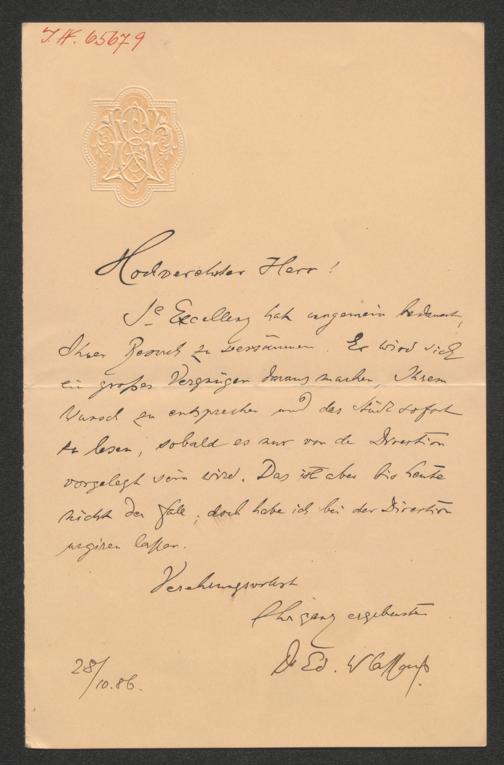 J.N. 65679
Hochverehrter Herr!
Se Excellenz hat ungemein bedauert,
Ihren Besuch zu versäumen. Er wird sich
ein großes Vergnügen daraus machen, Ihrem
Wunsch zu entsprechen und das Stück sofort
zu lesen, sobald es nur von der Direction
vorgelegt sein wird. Das ist aber bis heute
nicht der Fall, doch habe ich bei der Direction
urgiren lassen.
Verehrungsvollst
Ihr ganz ergebenster
Dr Ed. Wlassack
28/10.86.